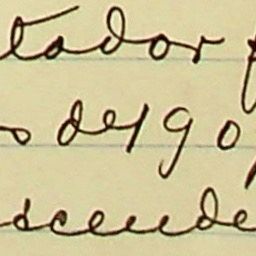 tador f
o de 190
scende